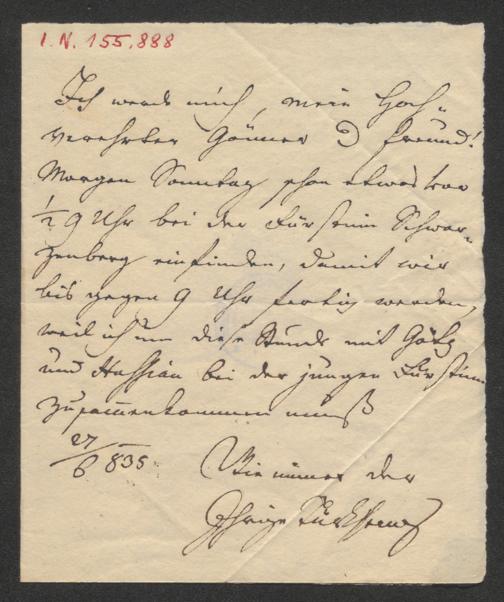 I. N. 155.888
Ich werde mich, mein Hoch-
verehrter Gönner & Freund!
Morgen Sonntag schon etwas vor
1/2 9 Uhr bei der Fürstin Schwar-
zenberg einfinden, damit wir
bis gegen 9 Uhr fertig werden,
weil ich um diese Stunde mit Götz
und bei der jungen Fürstin
zusammenkommen muß
27/6 835
Wie immer der
Ihrige Türkheim